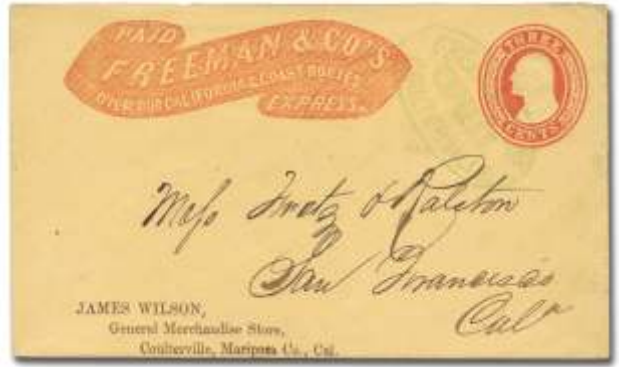 PAID
FREEMAN & CO'S
OVER OUR CALIFORNIA & COAST ROUTES
EXPRESS.
THREE
CENTS
Mess
& Ralston
San Francisco
Cal^a
JAMES WILSON,
General Merchandise Store,
Coulterville, Mariposa Co., Cal.